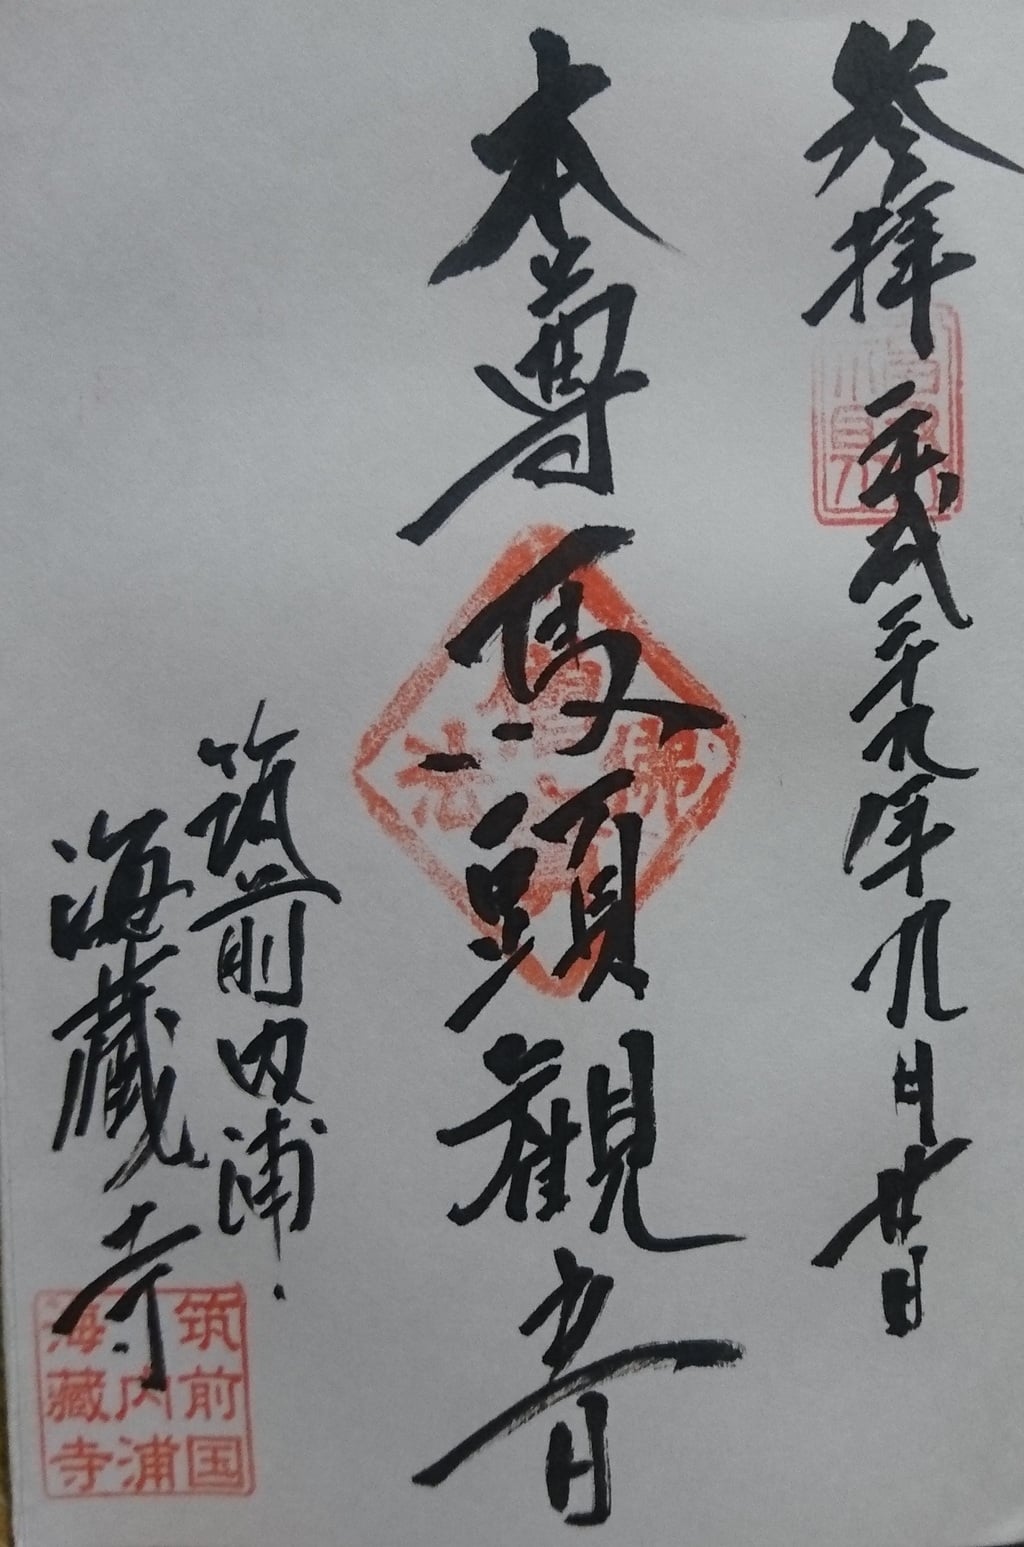 参拝 平成二十九年九月廿日
本尊 馬頭観音
佛法僧寳
筑前内浦
海蔵寺
筑前国
内浦
海蔵寺